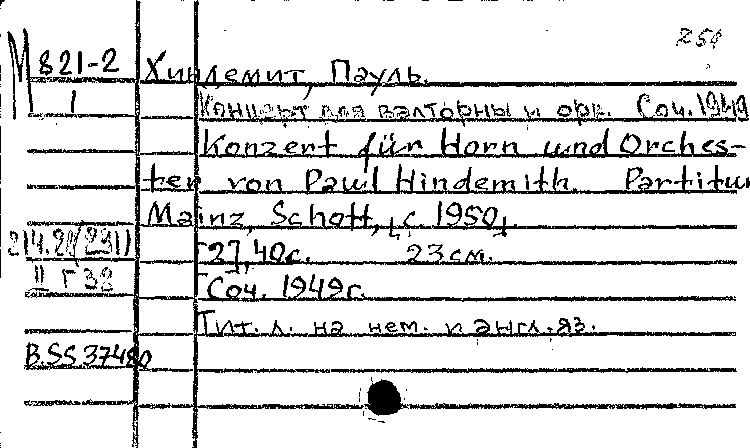 М 821-2
1
254
Хиндемит, Пауль.
Концерт для валторны и орк. Соч. 1949
Konzert für Horn und Orches-
ter von Paul Hindemith. Partitur
Mainz, Schott, [c 1950]
[2], 40с. 23 см.
Соч. 1949г.
Тит. л. на нем. и англ. яз.
II Г 38
B.SS 37480